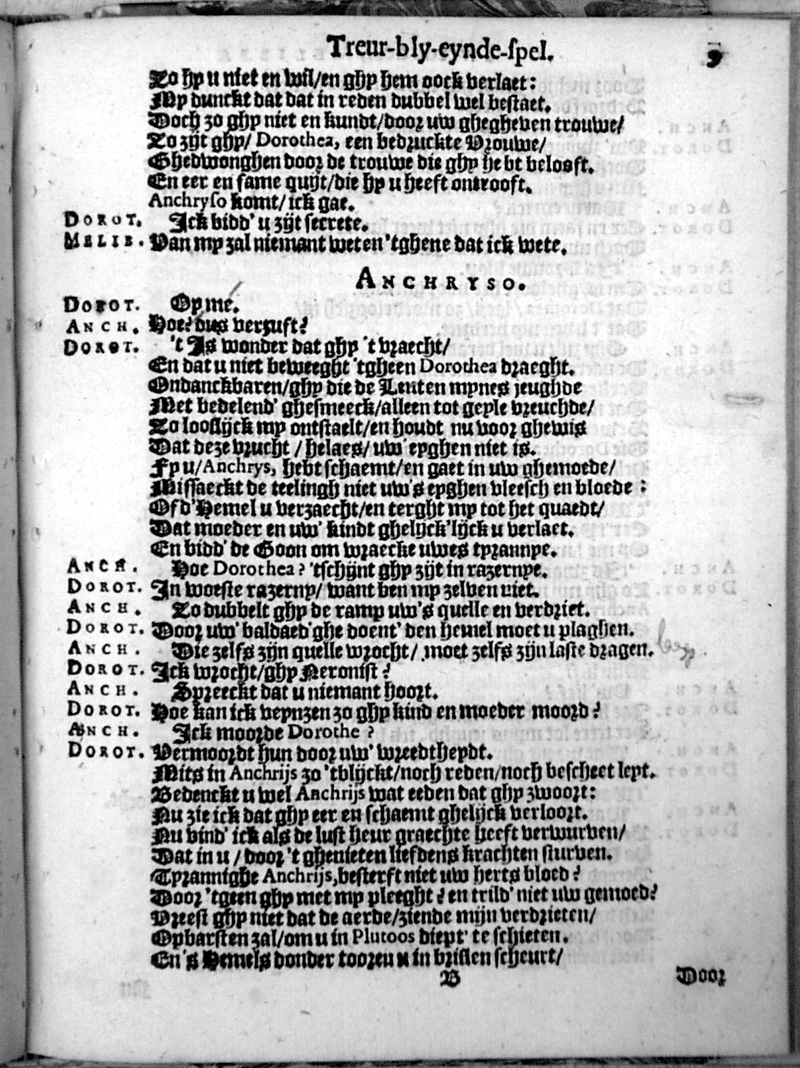 Treur-bly-eynde-spel. 9
Zo hy u niet en wil/en ghy hem oock verlaet:
My dunckt dat dat in reden dubbel wel bestaet.
Doch zo ghy niet en kundt/door uw ghegheven trouwe/
Zo zijt ghy/ Dorothea, een bedruckte Vrouwe/
Ghedwonghen door de trouwe die ghy hebt belooft.
En eer en fame quijt/die hy u heeft ontrooft.
Anchryso komt/ ick gae.
DOROT. Ick bidd' u zijt secrete.
MELIB. Van my zal niemant weten 'tghene dat ick wete.
ANCHRYSO.
DOROT. Oy mé.
ANCH. Hoe? dus versuft?
DOROT. 't Is wonder dat ghy 't vraecht/
En dat u niet beweeght 'tgheen Dorothea draeght.
Ondanckbaren/ghy die de Lenten mynes jeughde
Met bedelend' ghesmeeck/alleen tot geyle vreuchde/
Zo looslijck my ontstaelt/en houdt nu voor ghewis
Dat deze vrucht / helaes/ uw' eyghen niet is.
Fy u/Anchrys, hebt schaemt/en gaet in uw ghemoede/
Missaeckt de teelingh niet uw's eyghen vleesch en bloede:
Of d'Hemel u verzaecht/en terght my tot het quaedt/
Dat moeder en uw' kindt ghelijck'lijck u verlaet.
En bidd' de Goon om wraecke uwes tyrannye.
ANCH. Hoe Dorothea? 'tschijnt ghy zijt in razernye.
DOROT. In woeste razerny/ want ben my zelven niet.
ANCH. Zo dubbelt ghy de ramp uw's quelle en verdriet.
DOROT. Door uw' baldaed'ghe doent' den hemel moet u plaghen.
ANCH. Die zelfs zijn quelle wrocht/ moet zelfs zijn laste dragen.
DOROT. Ick wrocht/ghy Neronist?
ANCH. Spreeckt dat u niemant hoort.
DOROT. Hoe kan ick veynzen zo ghy kind en moeder moord?
ANCH. Ick moorde Dorothe?
DOROT. Vermoordt hun door uw' wreedtheydt.
Mits in Anchrijs zo 'tblijckt/noch reden/noch bescheet leyt.
Bedenckt u wel Anchrijs wat eeden dat ghy zwoort:
Nu zie ick dat ghy eer en schaemt ghelijck verloort.
Nu vind' ick als de lust heur graechte heeft verwurven/
Dat in u / door 't ghenieten liefdens krachten sturven.
Tyrannighe Anchrijs, besterft niet uw herts bloed?
Door 'tgeen ghy met my pleeght? en trild' niet uw gemoed?
Vreest ghy niet dat de aerde/ziende mijn verdrieten/
Opbarsten zal/om u in Plutoos diept' te schieten.
En 's Hemels donder tooren u in brislen scheurt/
B Door